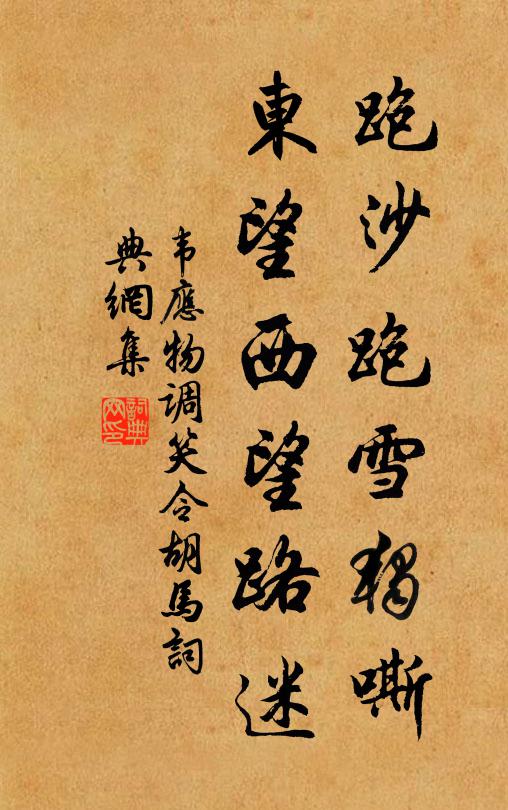 跑沙跑雪獨嘶
東望西望路迷
韦應物調笑令胡馬詞
典網集
詞典
网印